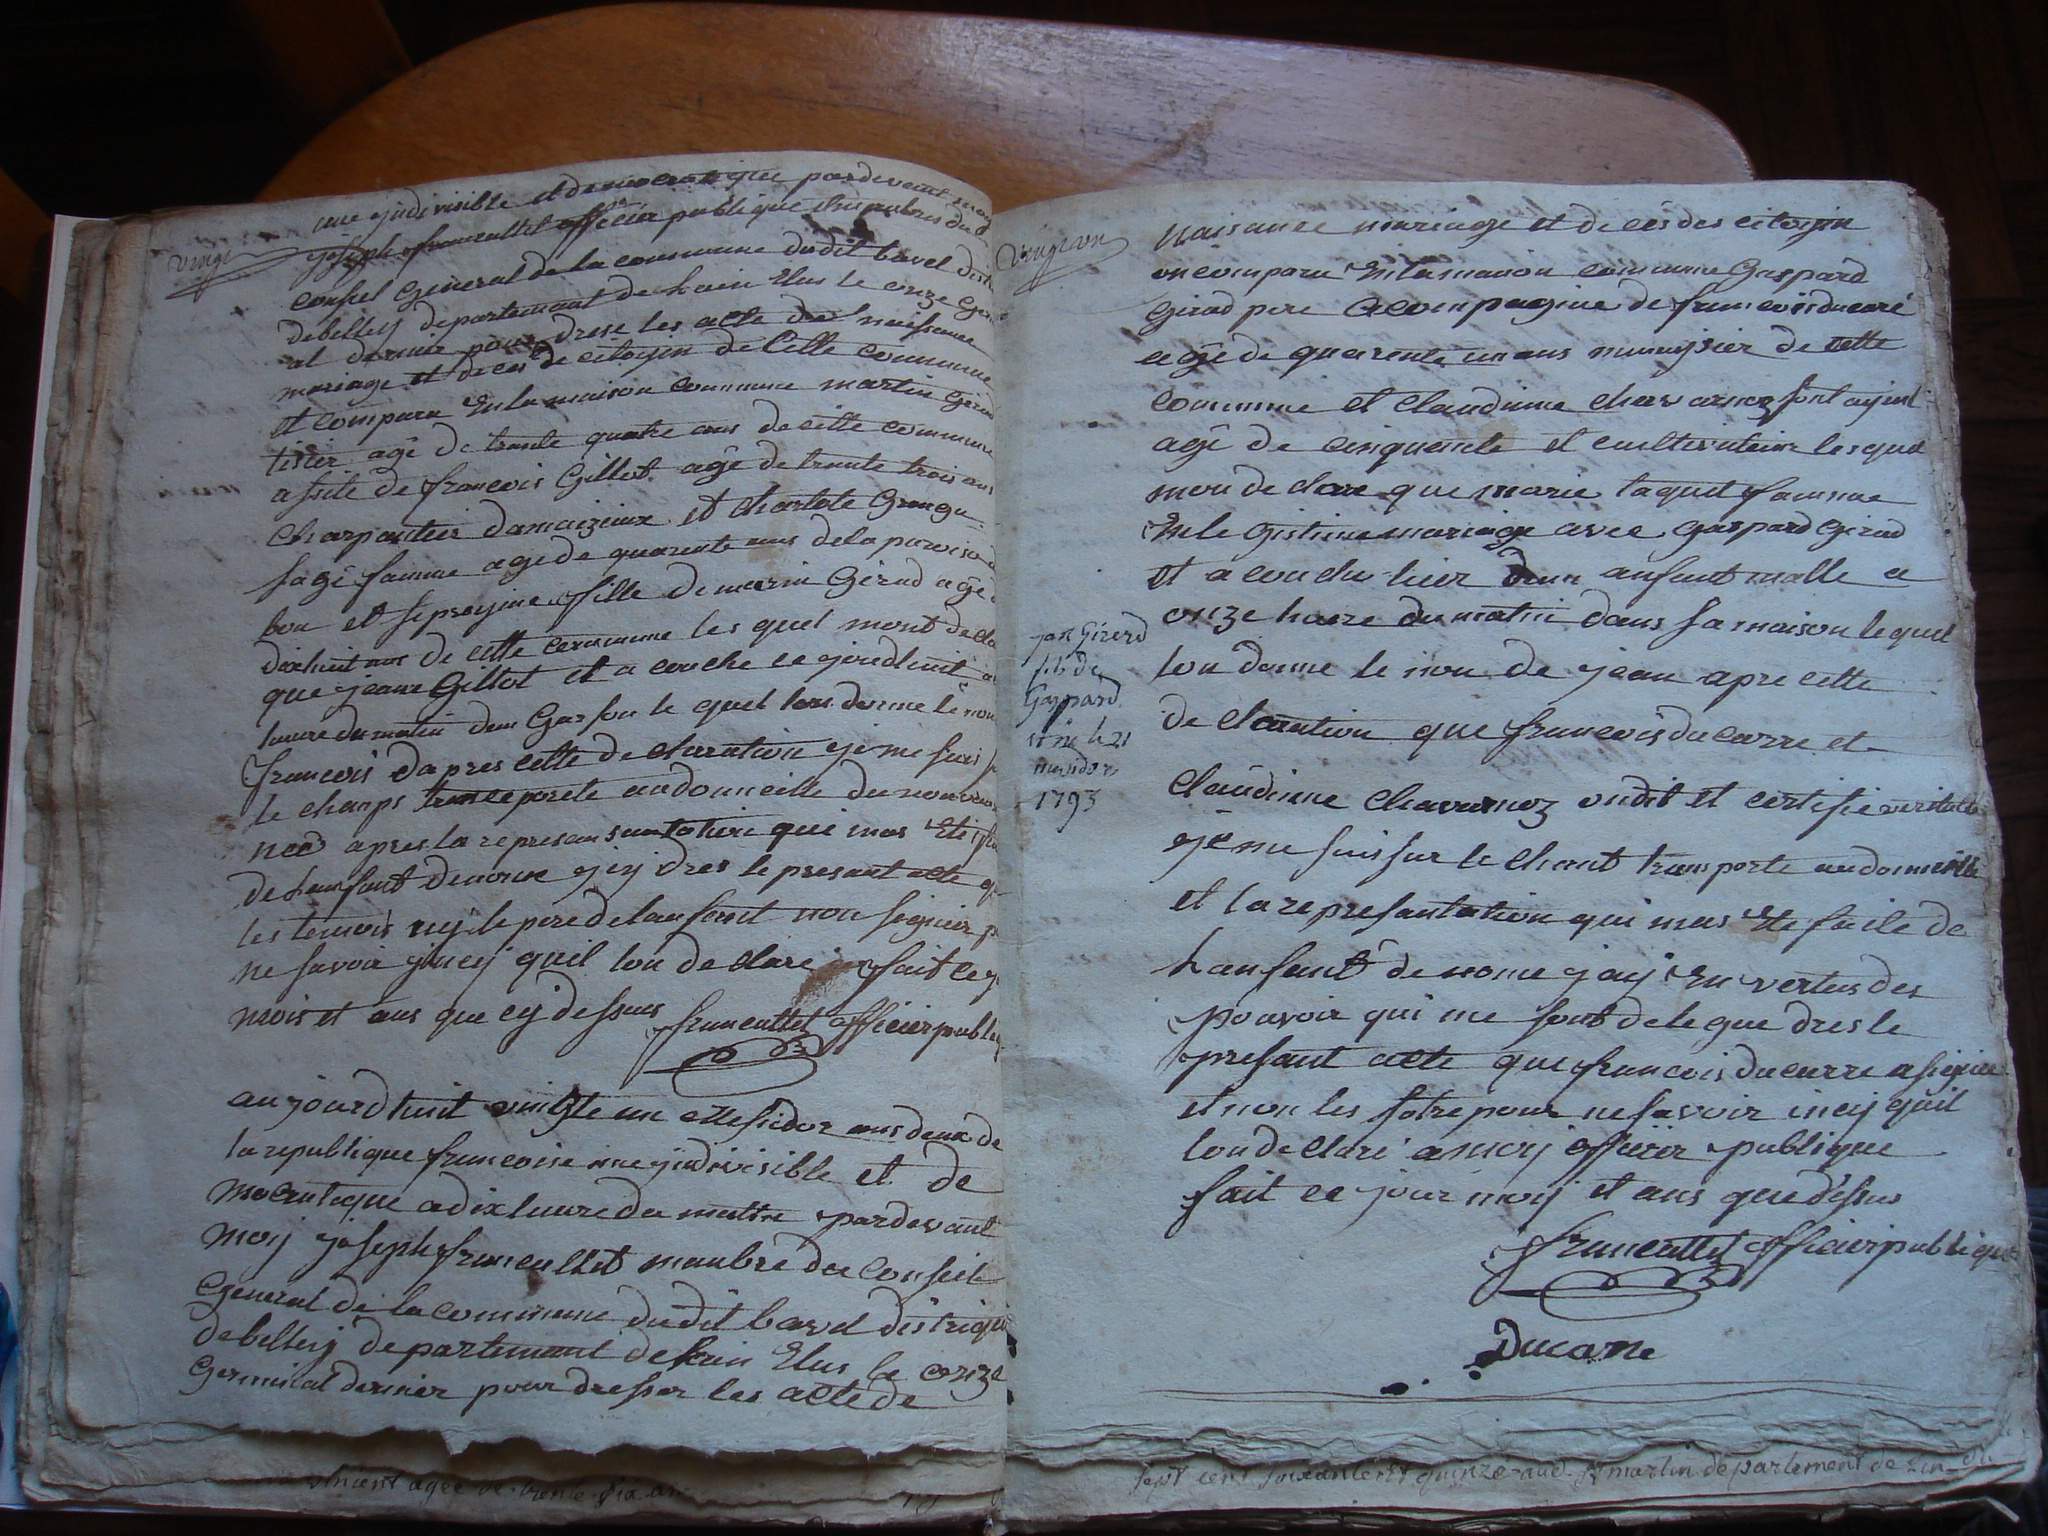 une yndivisible et democratique pardevant moy
joseph francallet officier publique manbres du
vingt
conseil General de la commune dudit bavel distri
debelley departemant de lain Elus le onze Germ
al dernier pour drese les acte de naissance
mariage et deces de citoyin de Cette commune
et compara En la maison commune martin Girod
tisier agê de trante quatre ans de cette commune
assité de francois Gillot agê de trante trois ans
Charpantier damaizieux et charlote
sagê famme age de quarente ans de la paroise
bon et fille de marin Girod agê
dixhuit ans de cette commune les quel mont decla
que jeanne Gillot et a couche ce jourdhuit a
heure du matin dun Garson le quel lon donne le nom
francois dapres cette de claration je me suis s
le champs transeporte audomicille du nouveau
nee apres la represansantation qui mas Eté f
de hanfant denome y ey dres le presant acte q
les temois ny le pere de lanfant non signier p
ne savoir y ncy quil lon de claré fait ce j
mois et ans que cy dessus francallet officier publiq
aujourdhuit vingte un Messidor ans deux de
la republique francoise une yndivisible et de
mocratique a dix heure du mattin pardevant
moy joseph francallet manbre du Conseil
General de la commune dudit bavel distrique
debelley departemant de lain Elus le onze
Germinal dernier pour dresser les acte de
vincent agee de trente six an
vingt un
naisance mariage et de cés des citoyin
on compara En la maison commune Gaspard
Girod pere acompagnie de francois ducaré
agê de quarente un ans munuysier de cette
commune et Claudinne chavarnoz font ayent
agê de cinquente et cultivateure lesquel
mon de clare que marie taquet famme
En legistime mariage avec Gaspard Girod
et a couche hier dun anfant malle a
onze heure du matin dans sa maison lequel
lon donne le non de jean apre cette
de claration que francois ducarre et
jan Girerd
fils de
Gaspard
et né le 21
messidor
1793
Claudinne Chavarnoz ondit et certifié veritable
je me suis sur le chant transporte audomicille
et la represantation qui mas Ete faite de
hanfant denome y ay En vertus des
pouvoir qui me sont delegue dres le
presant acte que francois ducarre a signier
et non les sotre pour ne savoir incy quil
lon de claré a moy officier publique
fait ce jour moy et ans que dessus
francallet officier publique
Ducarre
sept cent soixante et quinze aud. St martin departement de Lin